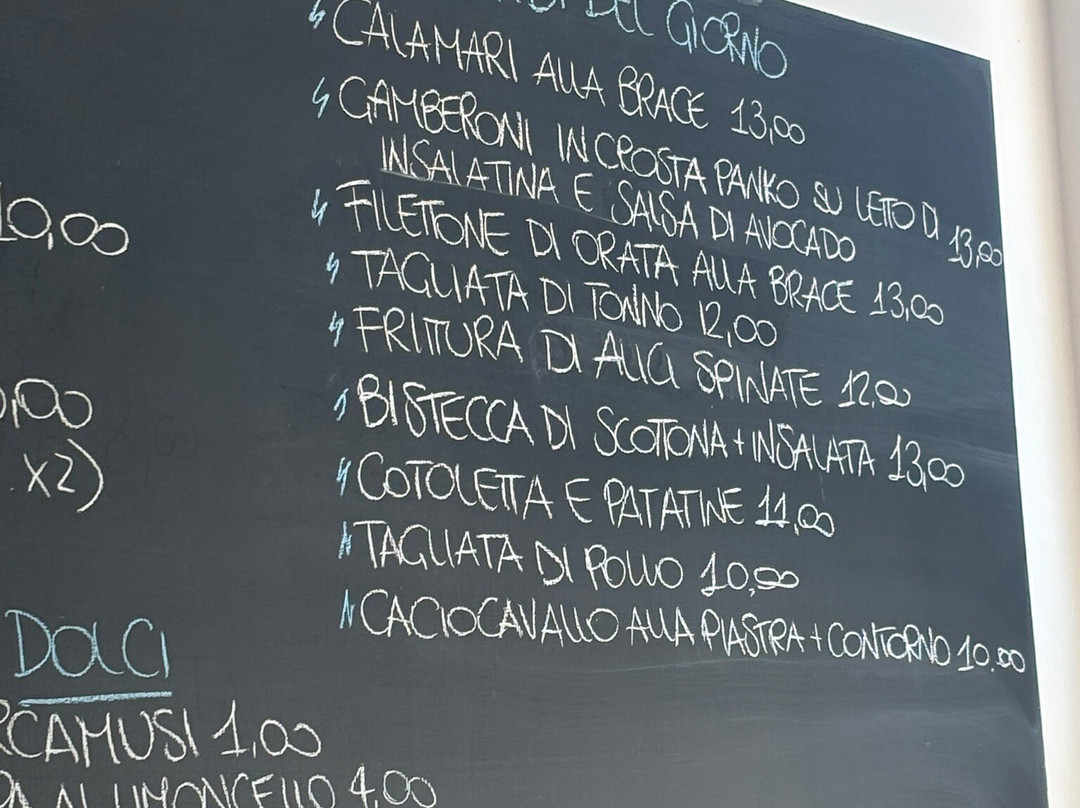 DEL GIORNO
CALAMARI ALLA BRACE 13,00
GAMBERONI IN CROSTA PANKO SU LETTO DI
INSALATINA E SALSA DI AVOCADO 13,00
FILETTONE DI ORATA ALLA BRACE 13,00
TAGLIATA DI TONNO 12,00
FRITTURA DI ALICI SPINATE 12,00
BISTECCA DI SCOTTONA + INSALATA 13,00
COTOLETTA E PATATINE 11,00
TAGLIATA DI POLLO 10,00
CACIOCAVALLO ALLA PIASTRA + CONTORNO 10,00
10,00
,00
x2)
DOLCI
RCAMUSI 1,00
AL LIMONCELLO 4,00